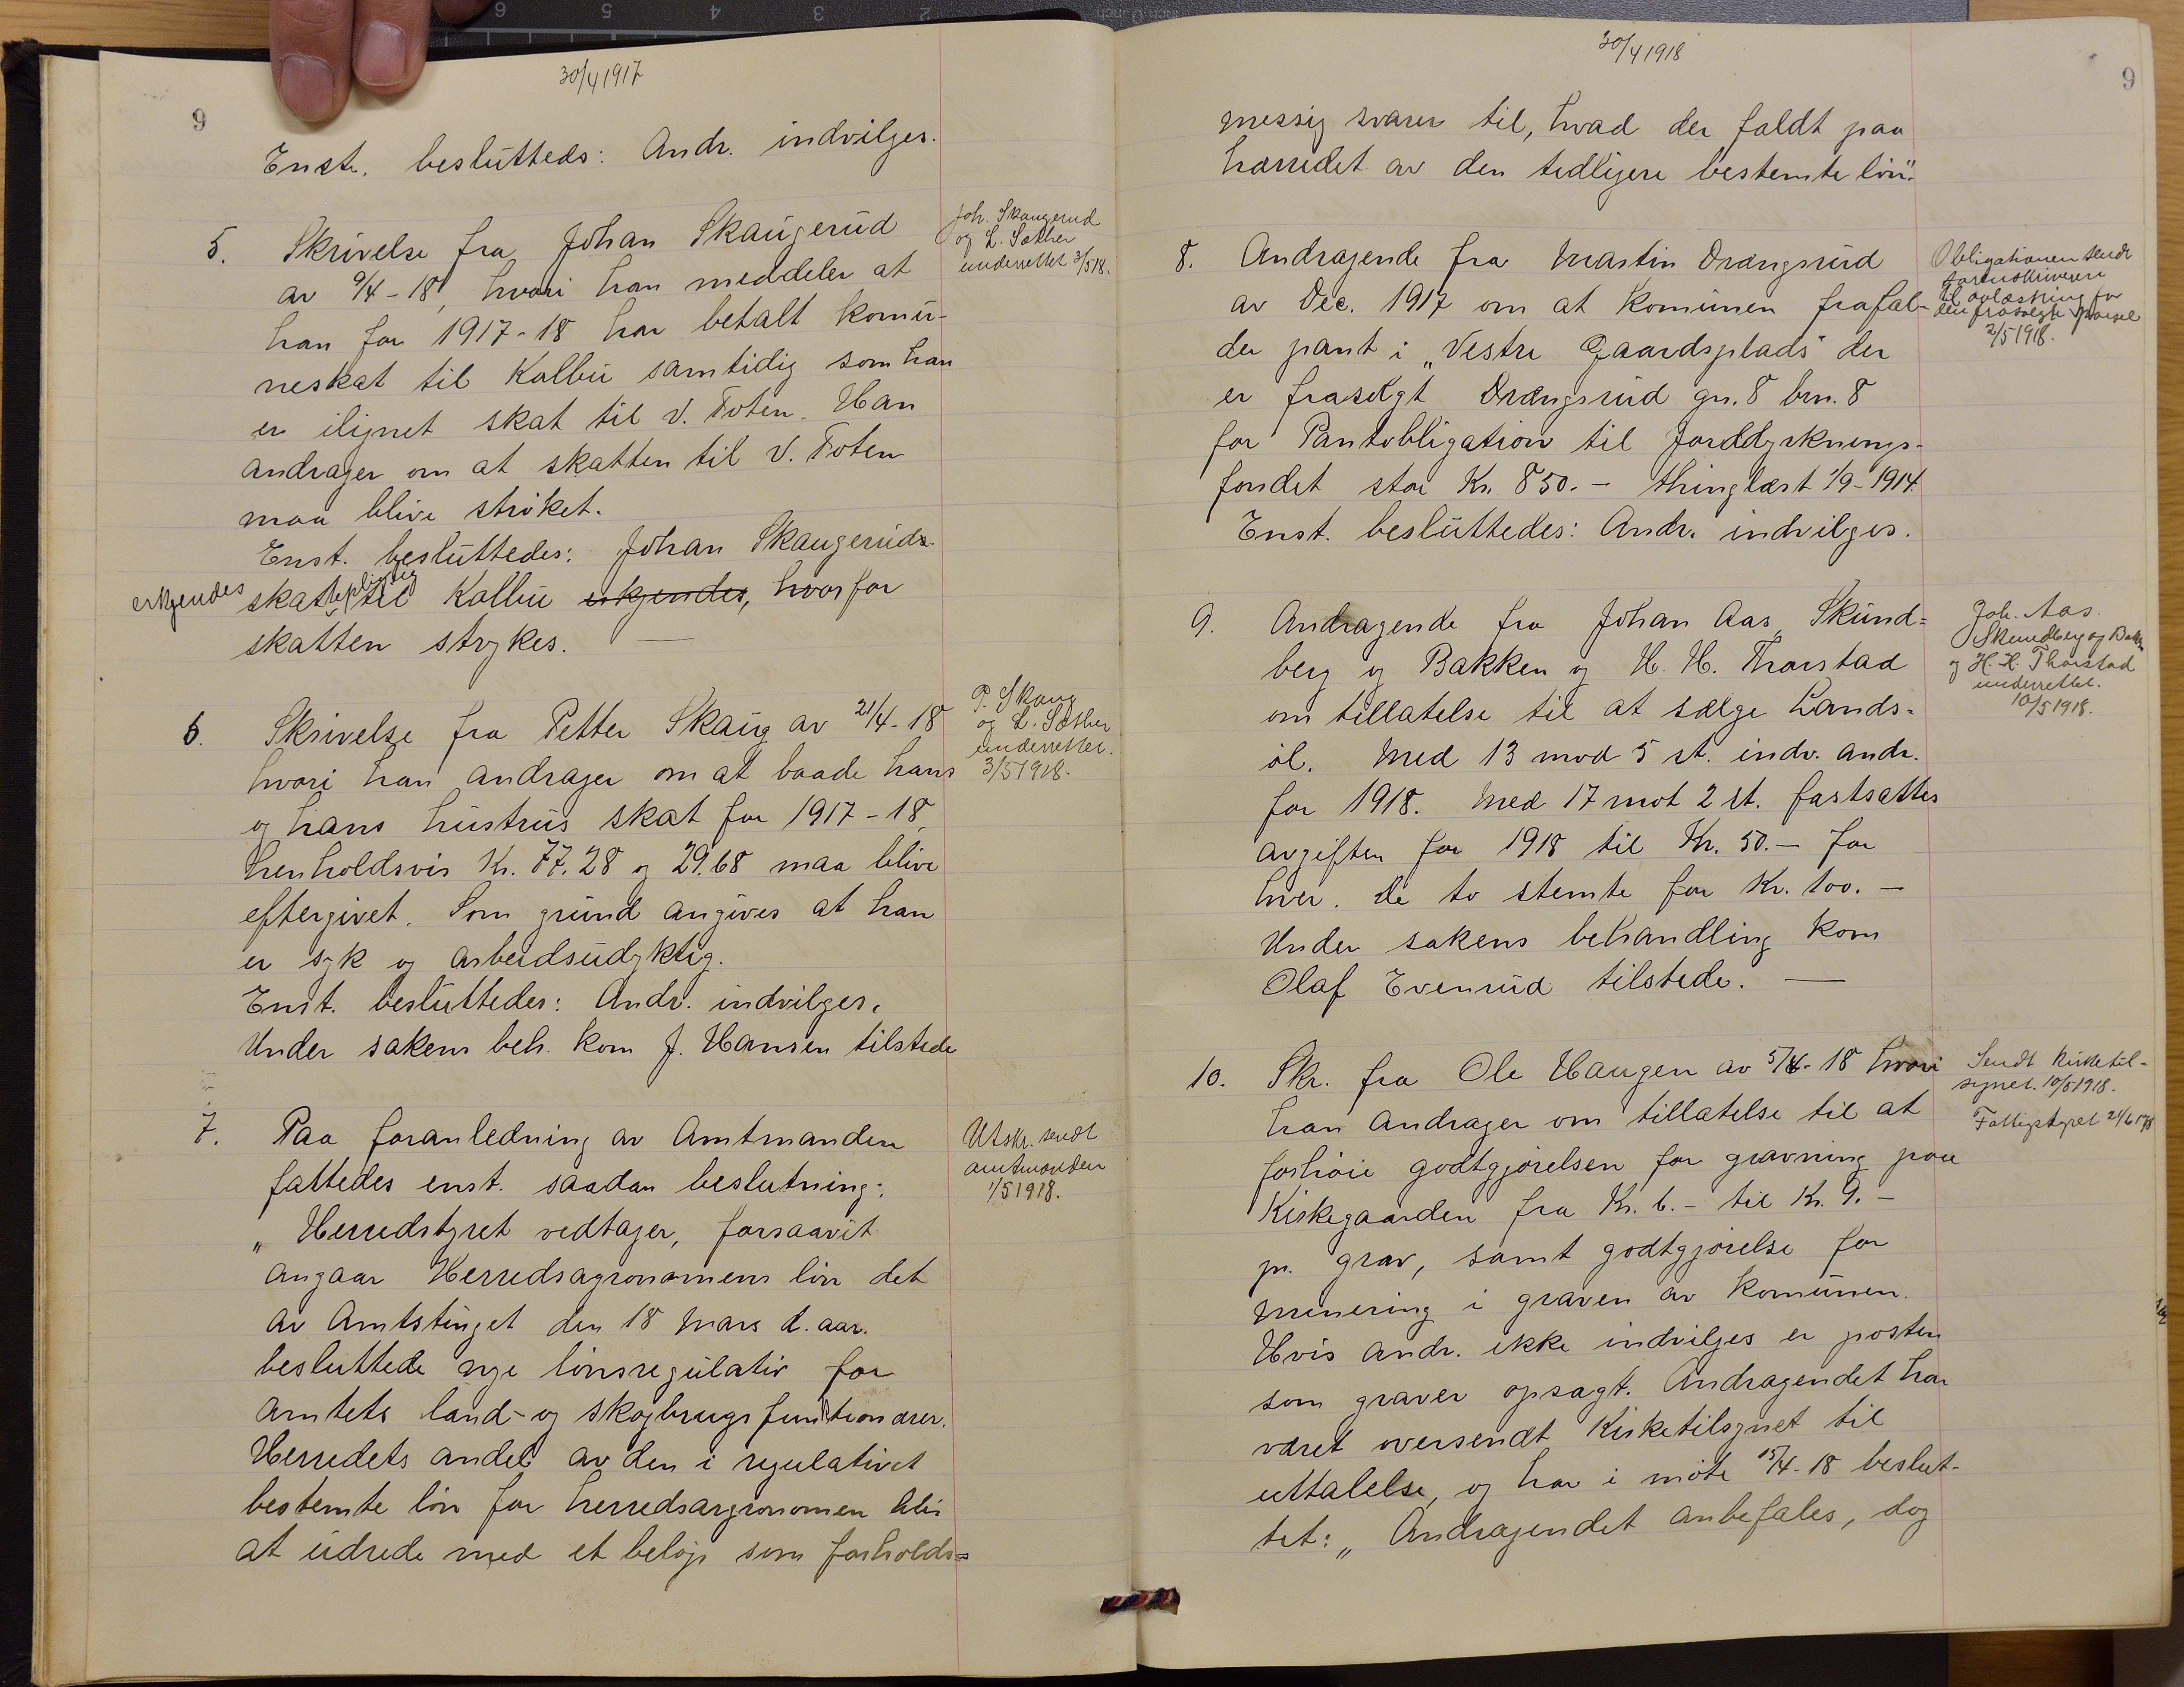 30/4 1917
9
Enst. besluttedes: Andr. indvilges.
5. Skrivelse fra Johan Skaugerud
av 9/4-18, hvori han meddeler at
han for 1917-18 har betalt komu-
neskat til Kolbu samtidig som han
er ilignet skat til V. Toten. Han
andrager om at skatten til V. Toten
maa blive strøket.
Enst. besluttedes: Johan Skaugeruds
erkjendes skattepligtig til Kolbu erkjendes, hvorfor
skatten strykes.
Joh. Skaugerud
og L. Sæther
underrettet 3/5 18.
6. Skrivelse fra Petter Skaug av 21/4-18
hvori han andrager om at baade hans
og hans hustrus skat for 1917-18,
henholdsvis Kr. 77.28 og 29.68 maa blive
eftergivet. Som grund angives at han
er syk og arbeidsudyktig.
Enst. besluttedes: Andr. indvilges.
Under sakens beh. kom J. Hansen tilstede
P. Skaug
og L. Sæther
underrettet.
3/5 1918.
7. Paa foranledning av Amtmanden
fattedes enst. saadan beslutning:
„Herredstyret vedtager, forsaavit
angaar Herredsagronomens løn det
av Amtstinget den 18 Mars d. aar.
besluttede nye lønsregulativ for
amtets land- og skogbrugsfunktionærer.
Herredets andel av den i regulativet
bestemte løn for herredsargronomen blir
at udrede med et beløp som forholds=
Utskr. sendt
amtmanden
1/5 1918.
30/4 1918
9
messig svarer til, hvad der faldt paa
herredet av den tedligere bestemte løn".
8. Andragende fra Martin Drængsrud
av Dec. 1917 om at komunen frafal-
der pant i „Vestre Gaardsplads" der
er frasolgt Drængsrud gn. 8 brn. 8
for Pantobligation til Jorddyrknings-
fondet stor Kr. 850.- thinglæst 1/9-1914.
Enst. besluttedes: Andr. indvilges.
Obligationen sendt
sorenskriveren
til avlæsning for
den frasolgte parsel
2/5 1918.
9. Andragende fra Johan Aas, Skund=
berg og Bakken og H. H. Thorstad
om tillatelse til at sælge Lands-
øl. Med 13 mod 5 st. indv. andr.
for 1918. Med 17 mot 2 st. fastsattes
avgiften for 1918 til Kr. 50.- for
hver. De to stemte for Kr. 100.-
Under sakens behandling kom
Olaf Evenrud tilstede.
Joh. Aas.
Skundberg og Bakken
og H. H. Thorstad
underrettet.
10/5 1918.
10. Skr. fra Ole Haugen av 5/4-18 hvori
han andrager om tillatelse til at
forhøie godtgjørelsen for gravning paa
Kirkegaarden fra Kr. 6.- til Kr. 9.-
pr. grav, samt godtgjørelse for
minering i graven av komunen.
Hvis andr. ikke indvilges er posten
som graver opsagt. Andragendet har
været oversendt Kirketilsynet til
uttalelse, og har i møte 15/4-18 beslut-
tet: „Andragendet anbefales, dog
Sendt Kirketil-
synet 10/5 1918.
Fattigstyret 24/6 1918